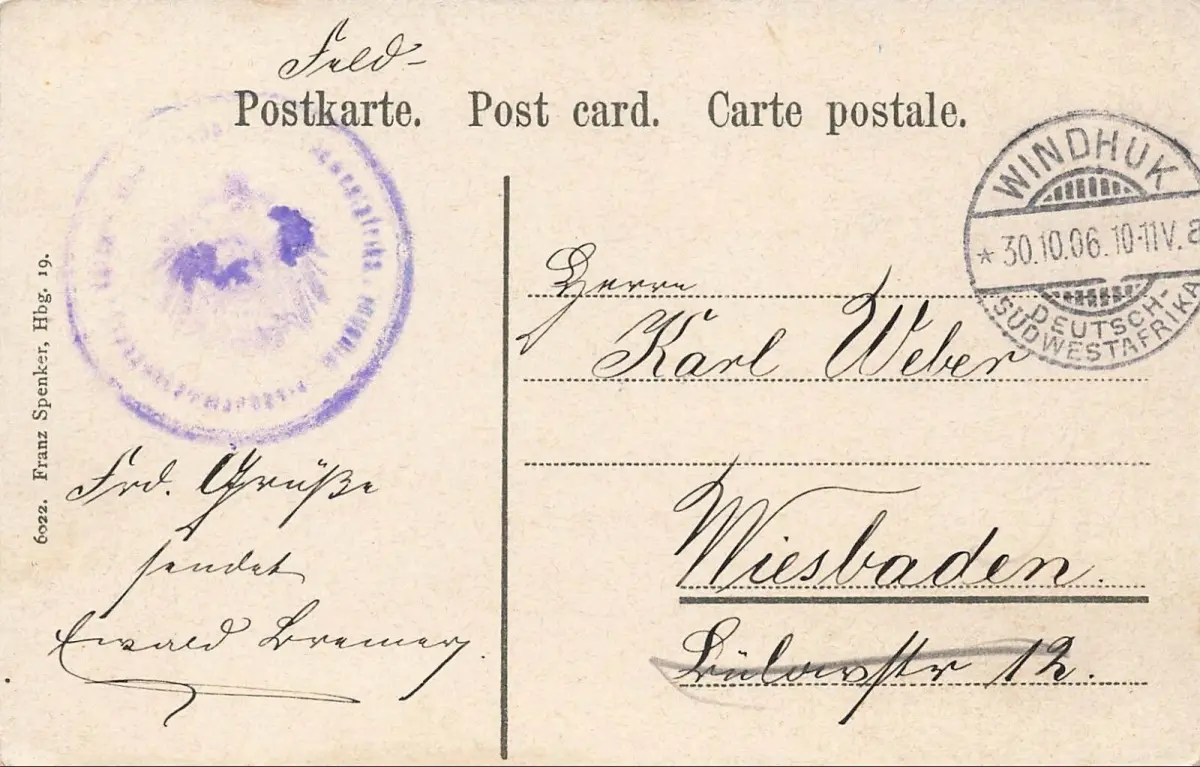 Feld-
Postkarte. Post card. Carte postale.
WINDHUK
* 30.10.06. 10-11V. a
DEUTSCH-
SÜDWESTAFRIKA
Herrn
Karl Weber
Wiesbaden.
Bülowstr 12.
Frd. Grüße
sendet
Ewald Bremer
6022. Franz Spenker, Hbg. 19.